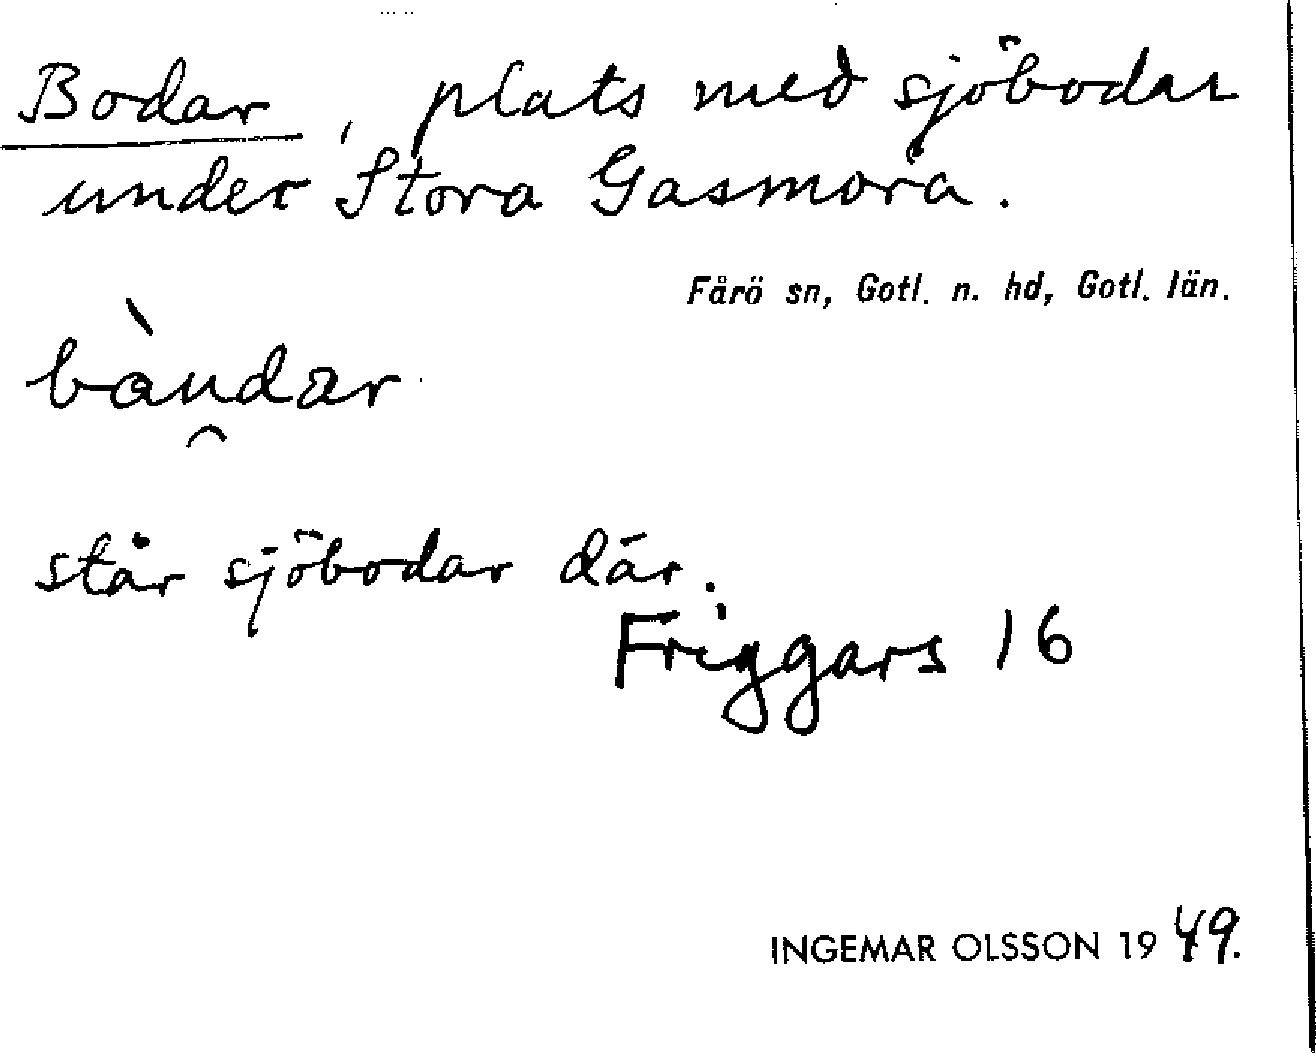 Bodar, plats med sjöbodar
under Stora Gasmora.
Fårö sn, Gotl. n. hd, Gotl. län.
bàu̯dar
står sjöbodar där.
Friggars 16
INGEMAR OLSSON 1949.